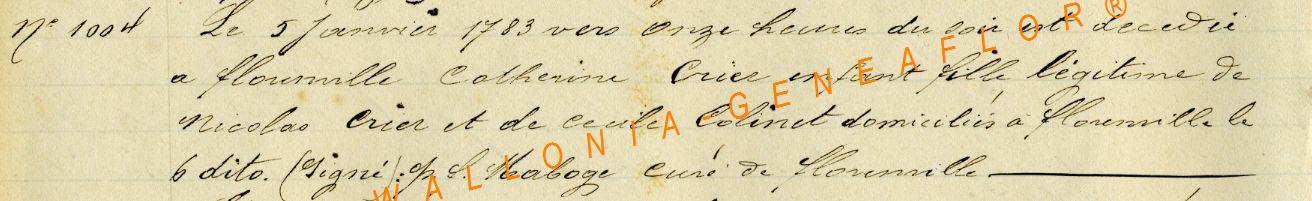 N° 1004 Le 5 Janvier 1783 vers onze heures du soir est decedée
a florenville Catherine Crier enfant fille légitime de
Nicolas Crier et de cecile Colinet domiciliés à florenville le
6 dito. (Signé): p. S. Maboge curé de florenville
WALLONIA-GENEAFLOR®